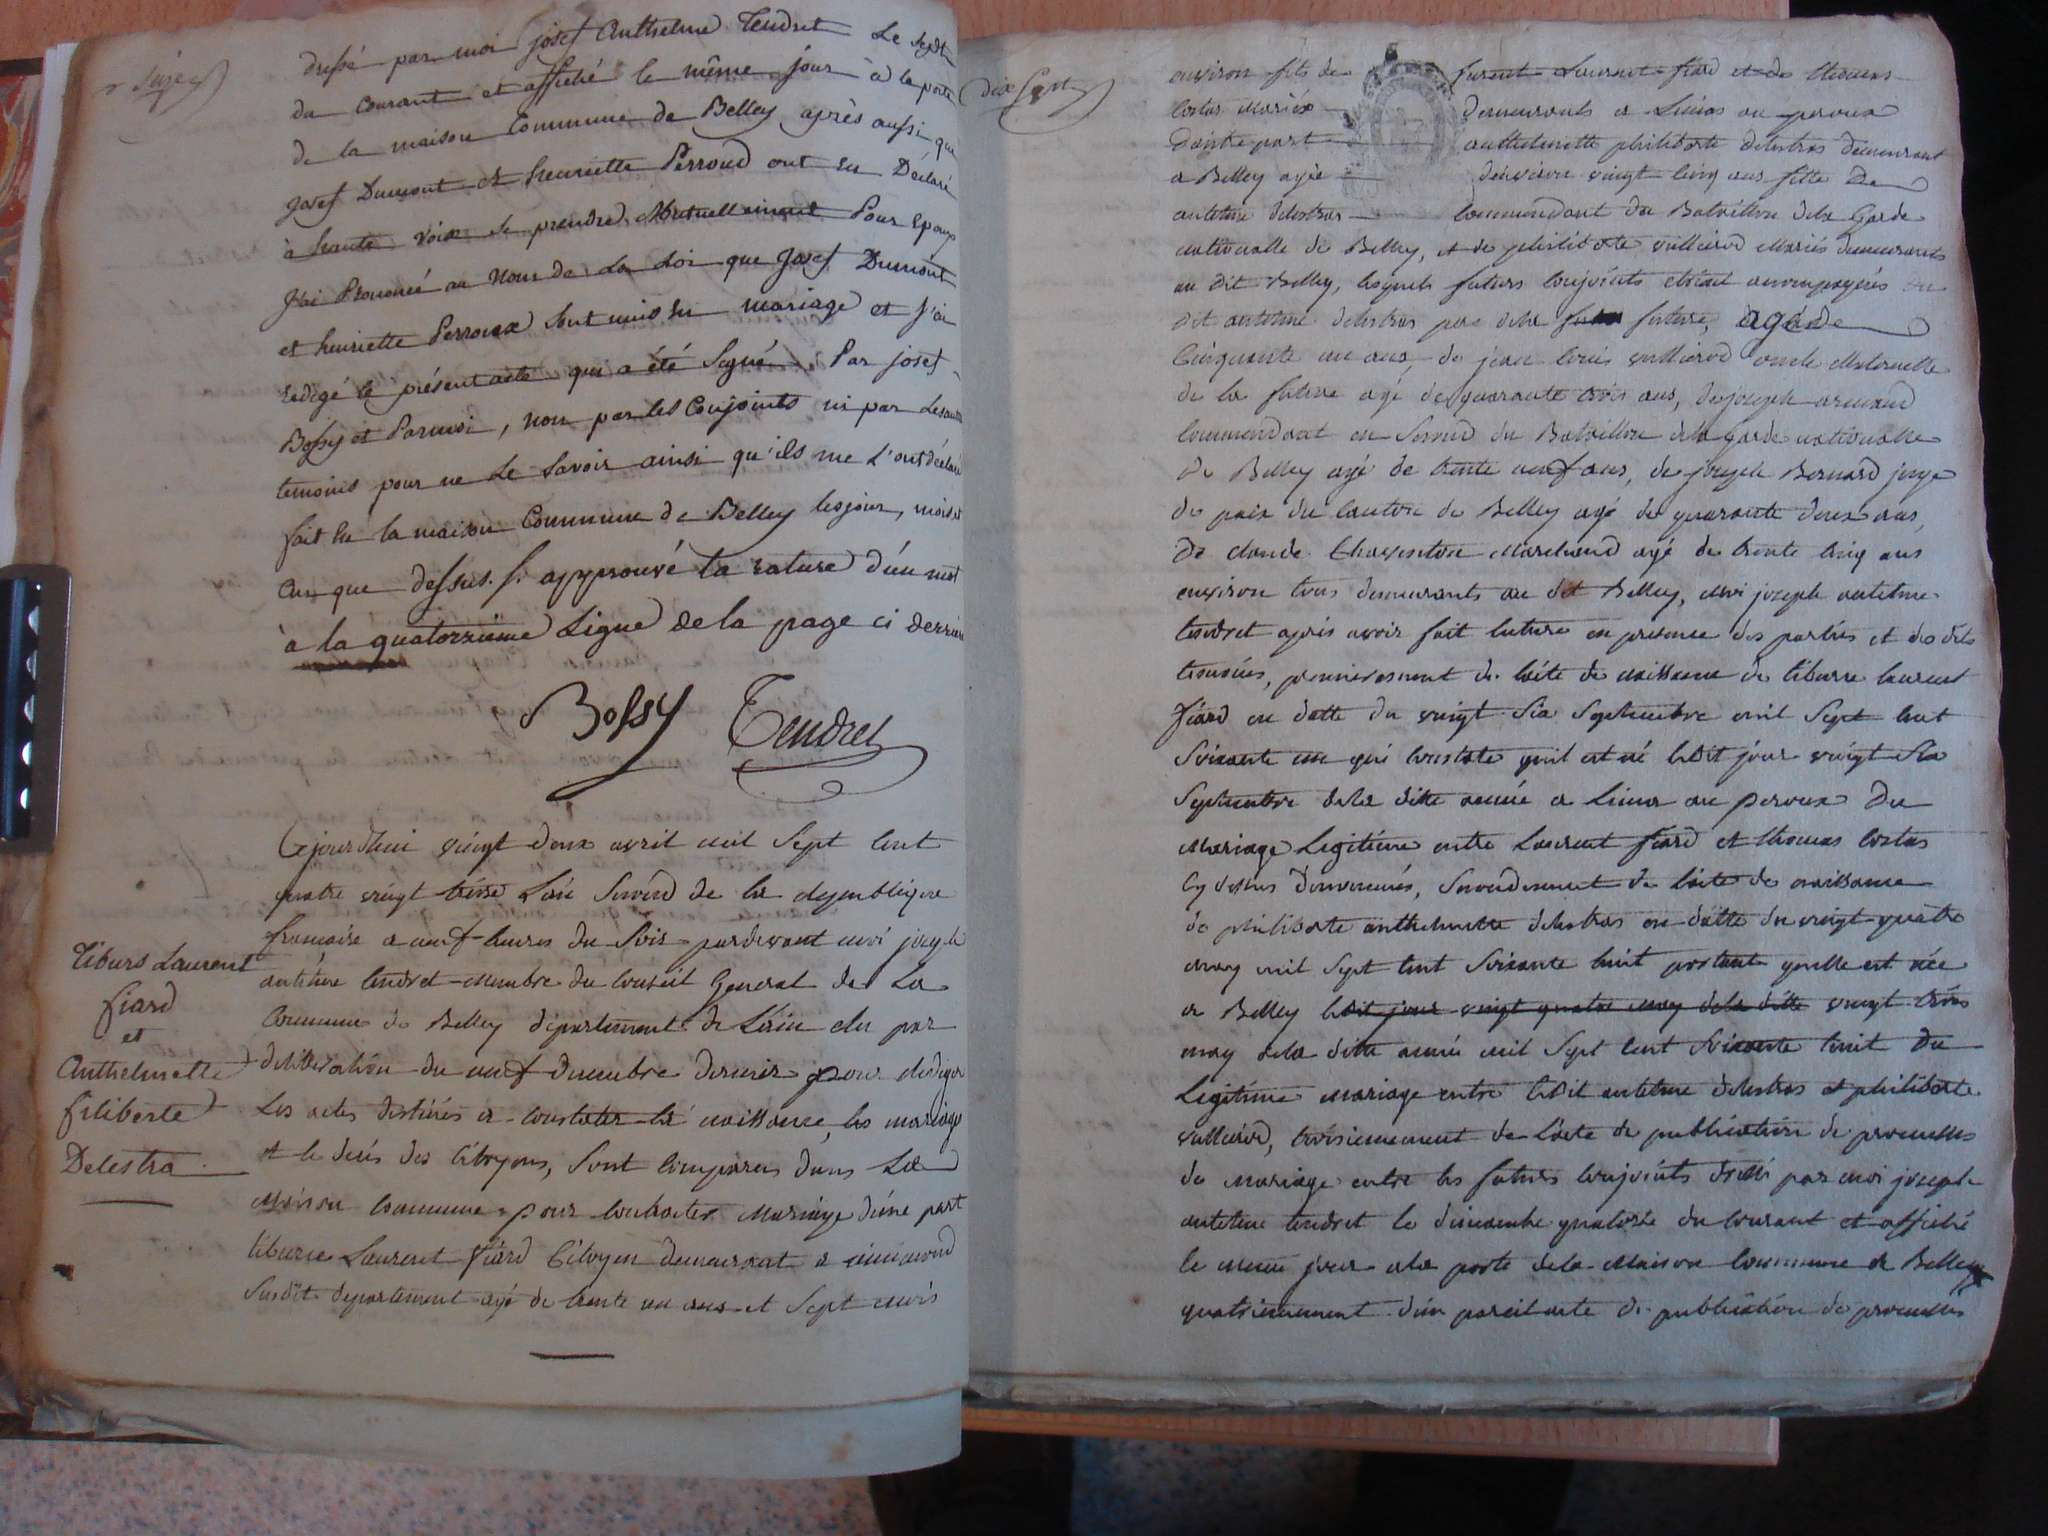 dressé par moi josef Anthelme Tendret Le sept
du Courant et affiché le même jour à la porte
de la maison Commune de Belley après aussi que
josef Dumont et henriette Perroud ont eu Déclaré
à haute voix se prendre Mutuellement Pour Epoux
J'ai Prononcé au Nom de La Loi que Josef Dumont
et henriette Perroud sont unis en mariage et j'ai
redigé le présent acte qui a été Signé Par josef
Bossy et Parmoi, non par les Conjoints ni par Les autres
temoins pour ne Le Savoir ainsi qu'ils me L'ont déclaré
fait en la maison Commune de Belley les jour, mois et
an que dessus. approuvé la rature d'un mot
à la quatorzième Ligne de la page ci derrière
Bossy Tendret
Tiburs Laurent
fiard
et
Anthelmette
filiberte
Delestra
Cejourdhui vingt deux avril mil Sept Cent
quatre vingt treize L'an Second de la Republique
francaise a neuf heures du Soir pardevant moi joseph
antelme tendret membre du Conseil General de La
Commune de Belley département de L'ain elu par
deliberation du neuf decembre dernier pour rediger
Les actes destinés a constater la naissance, les mariages
et le décès des Citoyens, Sont Comparus dans La
Maison Commune pour Contracter Mariage d'une part
tiburce Laurent fiard Citoyen demeurant a
Susdit departement agé de trente un ans et Sept mois
dix Sept
environ fils de furent Laurent fiard et de thomas
Costas Mariés demeurants a Limos au peroux
Dautre part anthelmette philiberte delestras demeurant
a Belley agée denviron vingt Cinq ans fille De
antelme delestras Commendant du Bataillon dela Garde
nationalle de Belley, et de philiberte vulliérod Mariés demeurants
au dit Belley, lesquels futurs Conjoints etoient accompagnés du
dit antelme delestras pere dela future, agé de
Cinquante un ans, de jean Louis vulliérod oncle Maternelle
de la future agé de quarante trois ans, de joseph armand
Commendant en Second du Bataillon dela garde nationalle
de Belley agé de trente neuf ans, de joseph Bernard juge
de paix du Canton de Belley agé de quarante deux ans,
De claude Marchand agé de trente Cinq ans
environ tous demeurants au dit Belley, Moi joseph antelme
tendret après avoir fait lecture en presence des parties et des dits
temoins, premierement de l'acte de naissance de tiburce laurent
fiard en datte du vingt Six Septembre mil Sept Cent
Soixante un qui constate quil est né ledit jour vingt Six
Septembre dela ditte année a Lima au peroux Du
Mariage Legitime entre Laurent fiard et thomas Costas
Cy dessus Denommés, Secondement de l'acte de naissance
de philiberte anthelmette delestras en datte du vingt quatre
may mil Sept Cent Soixante huit portant quelle est née
a Belley ledit jour vingt quatre may dela ditte vingt trois
may dela ditte année mil Sept Cent Soixante huit Du
Legitime Mariage entre ledit antelme delestras et philiberte
vulliérod, troisiemement de l'acte de publication de promesses
de Mariage entre les futurs Conjoints dressé par moi joseph
antelme tendret le dimanche quatorze du Courant et affiché
le meme jour ala porte dela Maison Commune de Belley
quatriemement d'un pareil acte de publication de promesses